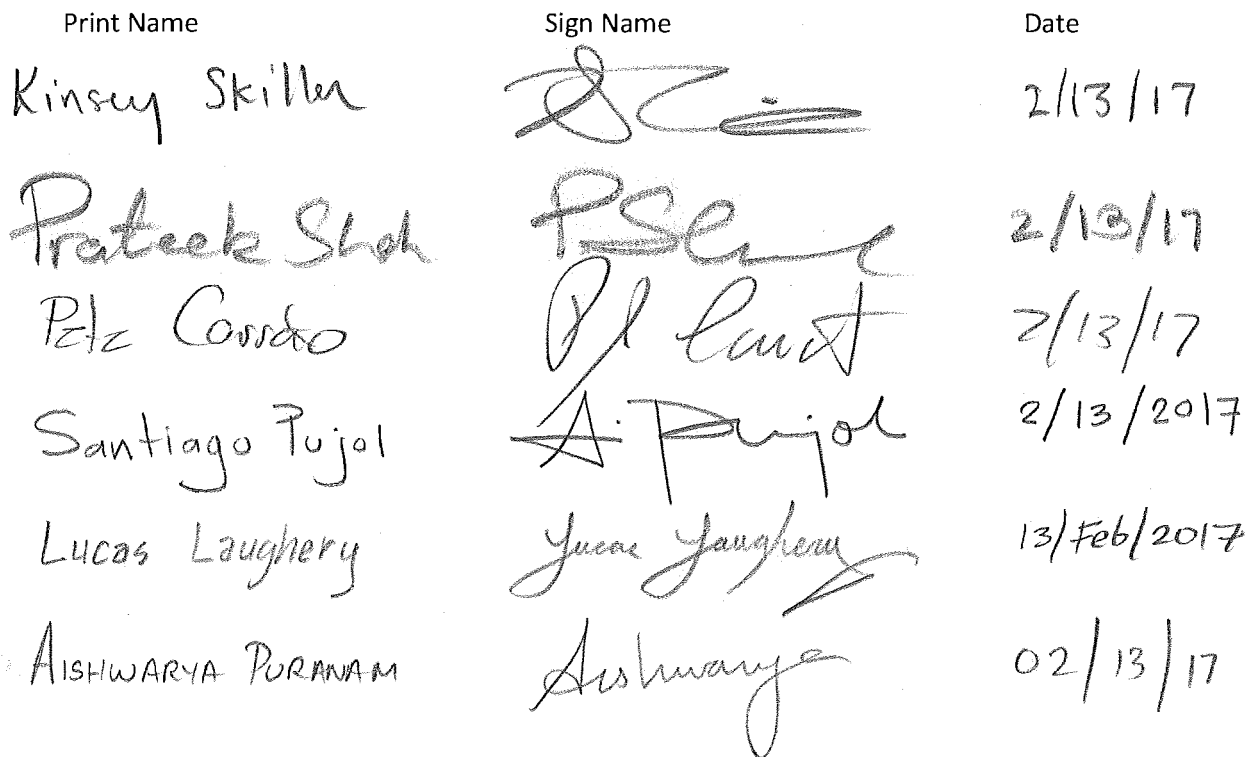 Print Name Sign Name Date
Kinsey Skiller 2/13/17
Prateek Shah P. Sh 2/13/17
2/13/17
Santiago Pujol S. Pujol 2/13/2017
Lucas Laughery Lucas Laughery 13/Feb/2017
AISHWARYA PURANAM Aishwarya 02/13/17